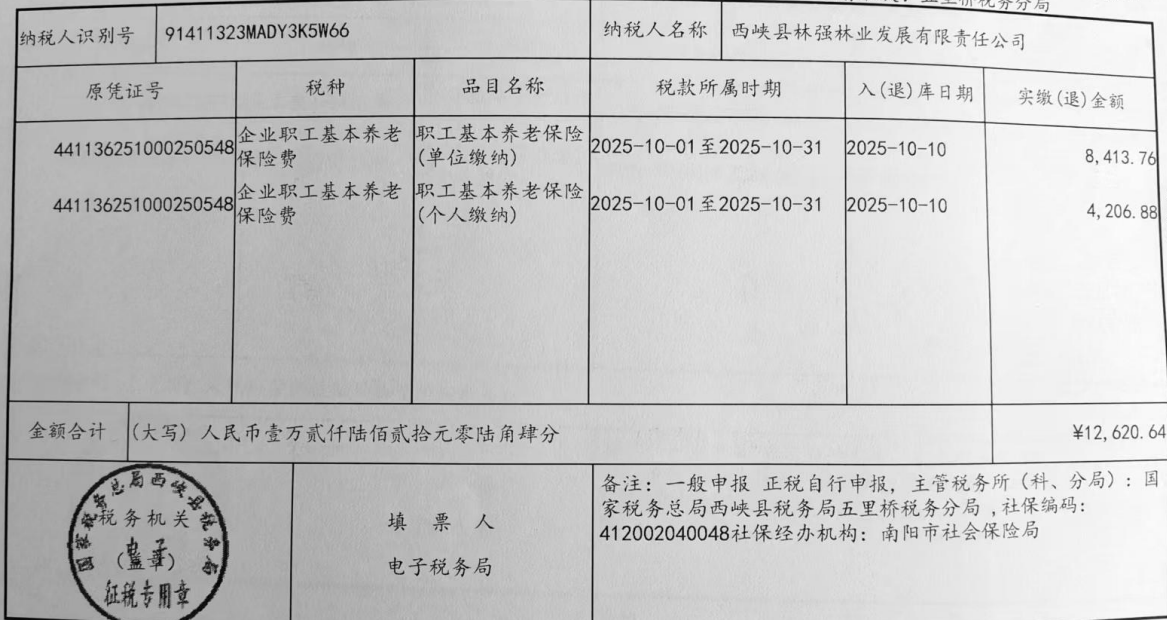 五里桥税务分局
纳税人识别号 91411323MADY3K5W66 纳税人名称 西峡县林强林业发展有限责任公司
原凭证号 税种 品目名称 税款所属时期 入(退)库日期 实缴(退)金额
441136251000250548 企业职工基本养老 职工基本养老保险 2025-10-01至2025-10-31 2025-10-10 8,413.76
保险费 (单位缴纳)
441136251000250548 企业职工基本养老 职工基本养老保险 2025-10-01至2025-10-31 2025-10-10 4,206.88
保险费 (个人缴纳)
金额合计 (大写) 人民币壹万贰仟陆佰贰拾元零陆角肆分 ¥12,620.64
国家税务总局西峡县税务局
税务机关
电子
(盖章)
征税专用章
填票人
电子税务局
备注：一般申报 正税自行申报, 主管税务所（科、分局）：国
家税务总局西峡县税务局五里桥税务分局 ,社保编码：
412002040048社保经办机构：南阳市社会保险局